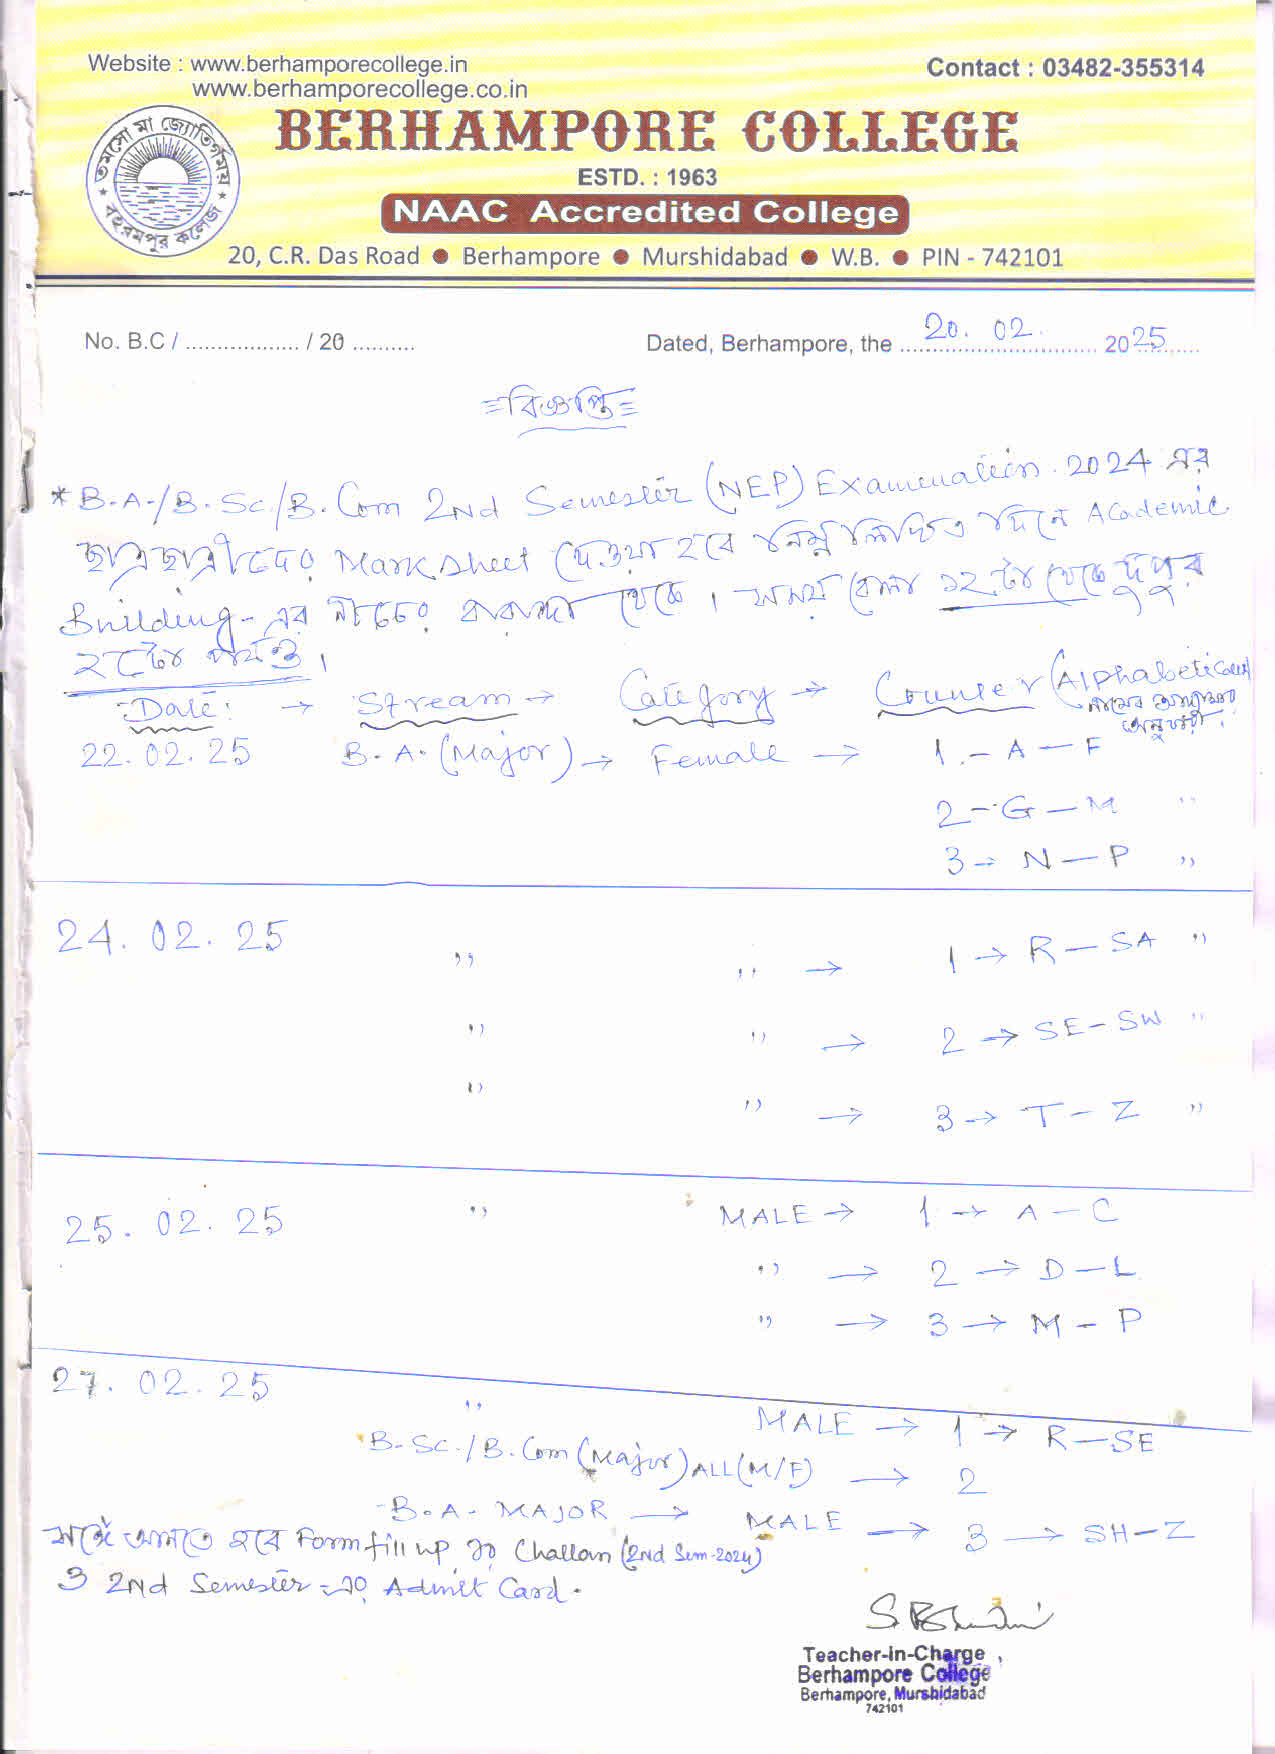 Website : www.berhamporecollege.in
www.berhamporecollege.co.in
Contact : 03482-355314
তমসো মা জ্যোতির্গময়
বহরমপুর কলেজ
BERHAMPORE COLLEGE
ESTD. : 1963
NAAC Accredited College
20, C.R. Das Road ● Berhampore ● Murshidabad ● W.B. ● PIN - 742101
No. B.C / .................. / 20 ..........
Dated, Berhampore, the 20. 02. 2025
=বিজ্ঞপ্তি=
* B.A./B.Sc./B.Com 2nd Semester (NEP) Examination. 2024 এর
ছাত্রছাত্রীদের Mark sheet দেওয়া হবে নিম্নলিখিত দিনে Academic
Building-এর নীচের বারান্দা থেকে। সময় বেলা ১২ টা থেকে দুপুর
২ টো পর্যন্ত।
Date: → Stream → Category → Counter (Alphabetical
নামের আদ্যক্ষর
অনুযায়ী)
22.02.25 B.A. (Major) → Female → 1 - A — F
2 - G — M "
3 → N — P "
24.02.25 " " → 1 → R — SA "
" " → 2 → SE - SW "
" " → 3 → T - Z "
25.02.25 " MALE → 1 → A — C
" → 2 → D — L
" → 3 → M - P
27.02.25 " MALE → 1 → R — SE
B.Sc./B.Com (Major) ALL (M/F) → 2
B.A. MAJOR → MALE → 3 → SH - Z
সঙ্গে আনতে হবে Form fill up এর Challan (2nd Sem-2024)
ও 2nd Semester-এর Admit Card.
Teacher-In-Charge
Berhampore College
Berhampore, Murshidabad
742101